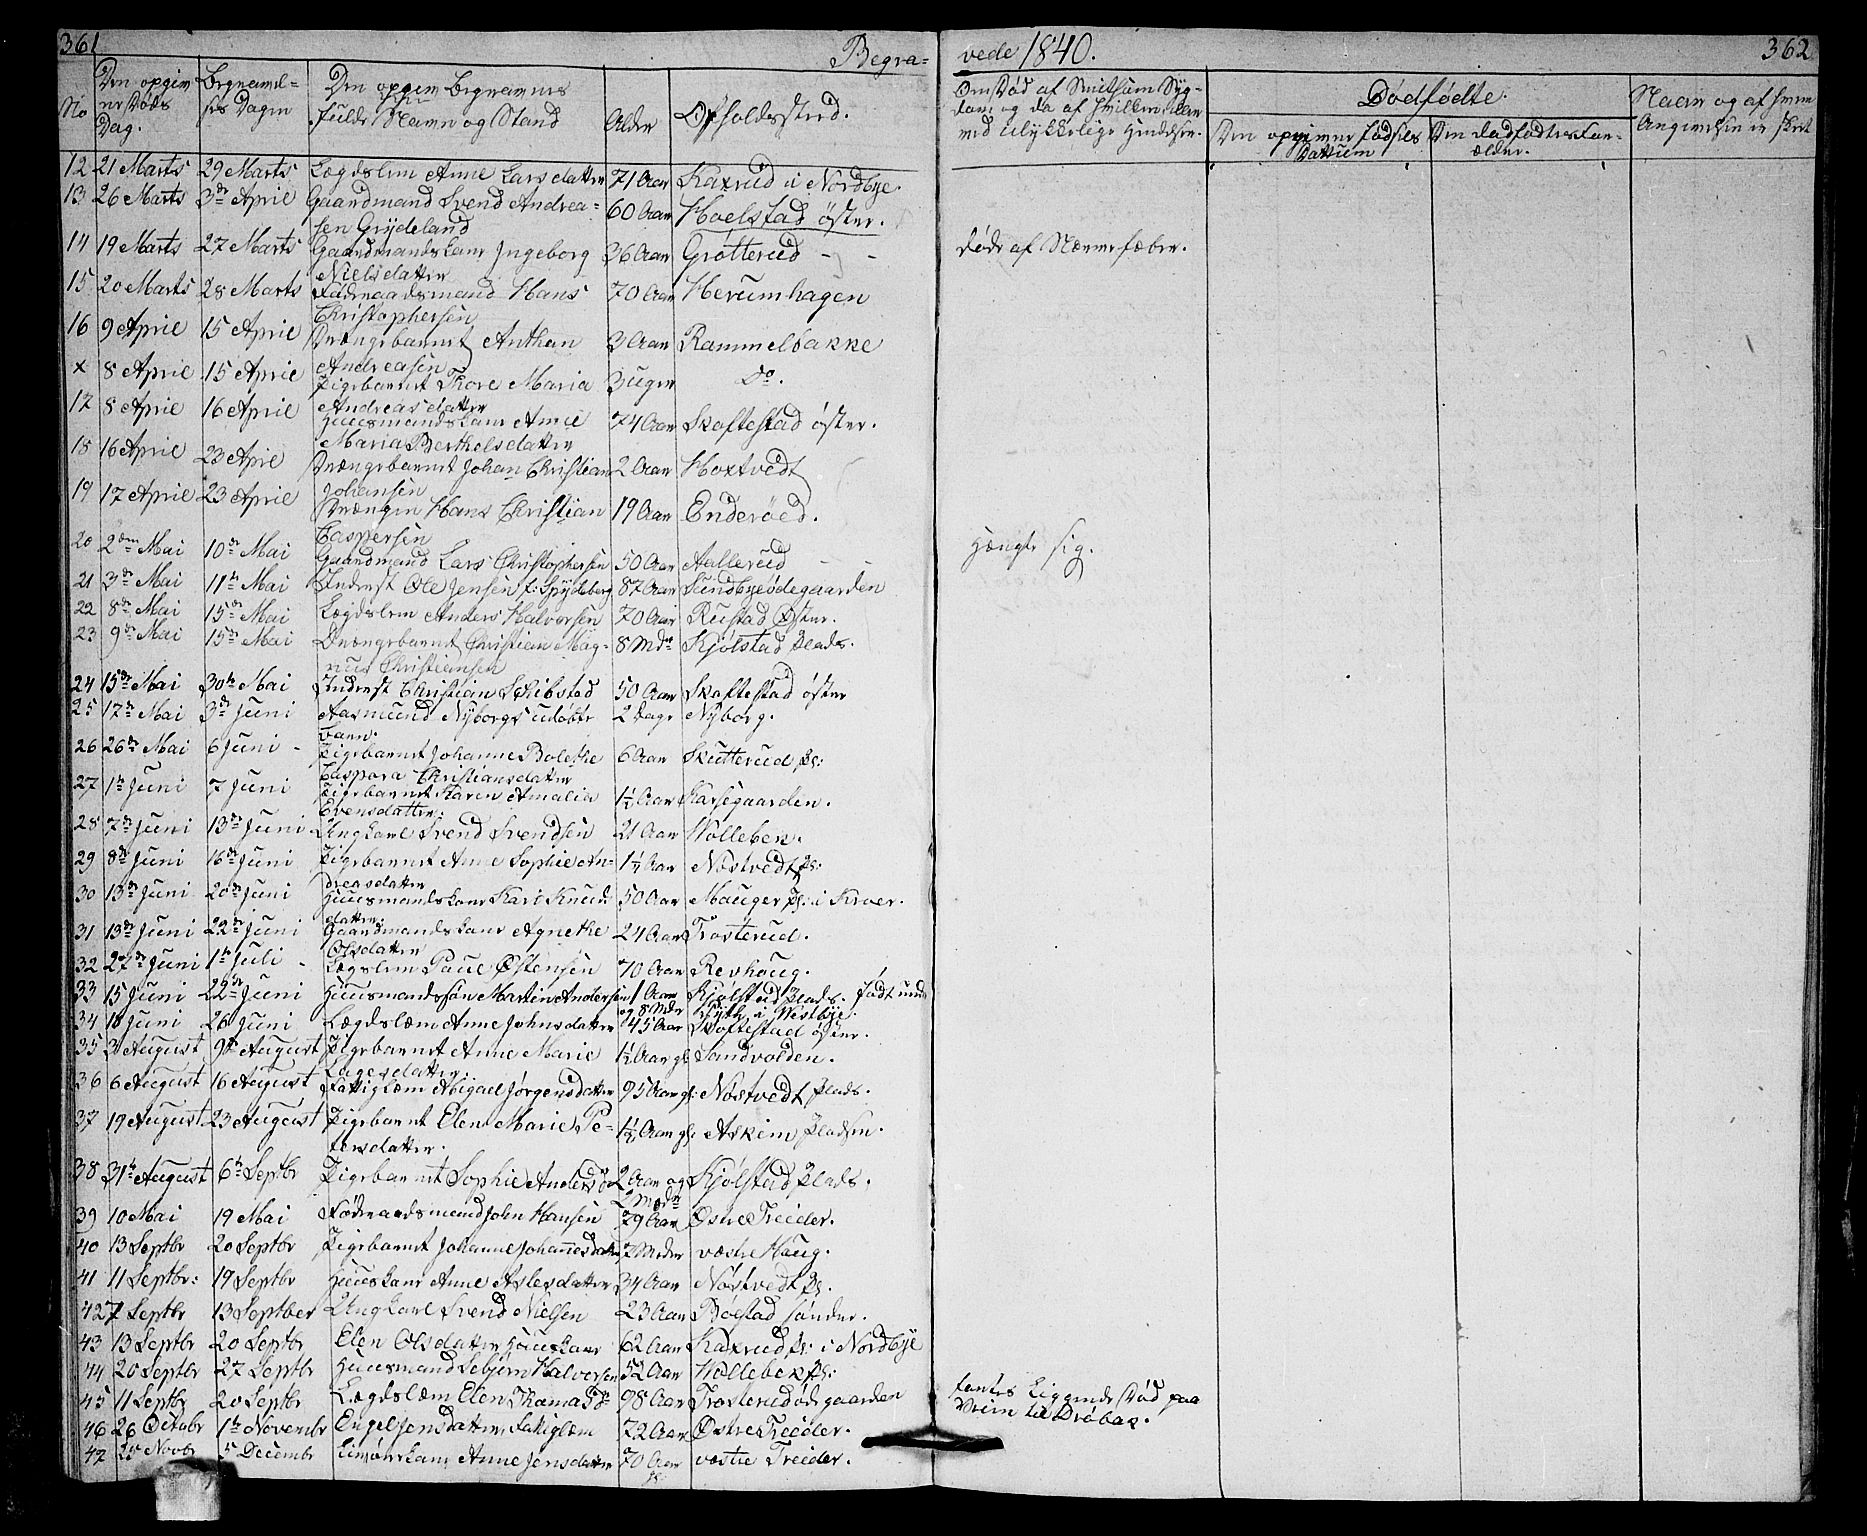 361 Begra= vede 1840. 362
No Den opgivne Døds Dag. Begravelses Dagen Den opgivne Begravenes fulde Navn og Stand Alder Opholdssted. Om Død af Smitsom Sygdom og da af hvilken, eller ved ulykkelige Hændelser. Dødfødte. Den opgivne Fødsels Dattum Den dødfødtes Forælder. Navn og af hvem Angivelsen er skeet
12 21 Marts 29 Marts Lægdslem Anne Larsdatter 71 Aar Kaxrud i Nordbye
13 26 Marts 3de Aprie Gaardmand Svend Andrea=
sen Grydeland 60 Aar Hoelstad øster.
14 19 Marts 27 Marts Gaardmandskone Ingeborg
Nielsdatter 36 Aar Grøtterud - - døde af Nervefæber.
15 20 Marts 28 Marts Føderaadsmand Hans
Christophersen 70 Aar Herumhagen
16 9 Aprie 15 Aprie Drængebarnet Anthon
Andreasen 3 Aar Rammelbakke
x 8 Aprie 15 Aprie Pigebarnet Thore Maria
Andreasdatter 3 Uger Do.
17 8 Aprie 16 Aprie Huusmandskone Anne
Maria Bertholsdatter 74 Aar Skoftestad øster.
18 16 Aprie 23 Aprie Drængebarnet Johan Christian
Johansen 2 Aar Hoxtvedt
19 17 Aprie 23 Aprie Drængen Hans Christian
Caspersen 19 Aar Enderøed.
20 2den Mai 10de Mai Gaardmand Lars Christophersen 50 Aar Aallerud - - Hængte sig.
21 3de Mai 11te Mai Inderst Ole Jensen f: Spydeberg 87 Aar Sundbyeødegaarden
22 8de Mai 15de Mai Lægdslem Anders Halvorsen 70 Aar Rustad Øster.
23 9de Mai 15de Mai Drængebarnet Christian Mag-
nus Christiansen 8 Mdr Kjølstad Plads.
24 15de Mai 30te Mai Inderst Christian Skibstad 50 Aar Skoftestad øster
25 17de Mai 3de Juni Aasmund Nyborgs udøbte
Barn. 2 Dage Nyborg.
26 26de Mai 6 Juni - Pigebarnet Johanne Bolethe
Caspora Christiansdatter 6 Aar Skutterud Pl:
27 1te Juni 7 Juni Pigebarnet Karen Amalia
Evensdatter. 1½ Aar Karsegaarden.
28 7de Juni 13de Juni Ungkarl Svend Svendsen 21 Aar Holleben.
29 8de Juni 16de Juni Pigebarnet Anne Sophie An-
dreasdatter 1¼ Aar Nøstvedt Pl:
30 13de Juni 20de Juni Huusmandskone Kari Knud
datter. 50 Aar Mauger Pl: i Kroer.
31 13de Juni 22de Juni Gaardmandskone Agnethe
Olsdatter 24 Aar Trosterud.
32 27de Juni 1te Juli - Lægslem Paul Østensen 70 Aar Revhaug.
33 15 Juni 22de Juni Huusmandssøn Martin Andersen 1 Aar
og 8 Mdr Kjølstad Plads. født i Westbye.
34 18 Juni 26 Juni Lægdslem Anne Johnsdatter 45 Aar Skoftestad øster.
35 3 August 9de August Pigebarnet Anne Marie
Lagesdatter. 1½ Aar gl Sandvolden.
36 6 August 16 August Fattiglem Abigael Jørgensdatter 95 Aar gl: Nøstvedt Plads.
37 19 August 23 August Pigebarnet Elen Marie Pe-
tersdatter. 1½ Aar gl: Askim Pladsen.
38 31te August 6te Septbr Pigebarnet Sophie Andersd 2 Aar og
2 Mdr Kjølstad Plads.
39 10 Mai 19 Mai Føderaadsmand John Hansen 79 Aar Østre Treider.
40 13 Septbr 20 Septbr Pigebarnet Johanne Johannesdatter 7 Mdr væstre Haug.
41 11 Septbr: 19 Septbr Huuskone Anne Aslesdatter 34 Aar Nøstvedt Pl.
42 7 Septbr 13 Septber Ungkarl Svend Nielsen 23 Aar Bølstad sønder.
43 13 Septbr 20 Septbr Elen Olsdatter Huuskone 62 Aar Kaxrud Pl: i Nordbye
44 20 Septbr 27 Septbr Huusmand Sebjørn Halvorsen 52 Aar Hollebek Pl:
45 11 Septbr 20 Septbr Lægdslem Elen Thomasd 98 Aar Trosterudødegaarden fantes liggende Død paa
Veien til Drøbak.
46 26 Octobr 1te Novembr Engel Jensdatter Fattiglem 72 Aar Østre Treider.
47 25 Novbr 5 Decembr Anne Jensdatter 70 Aar væstre Treider.